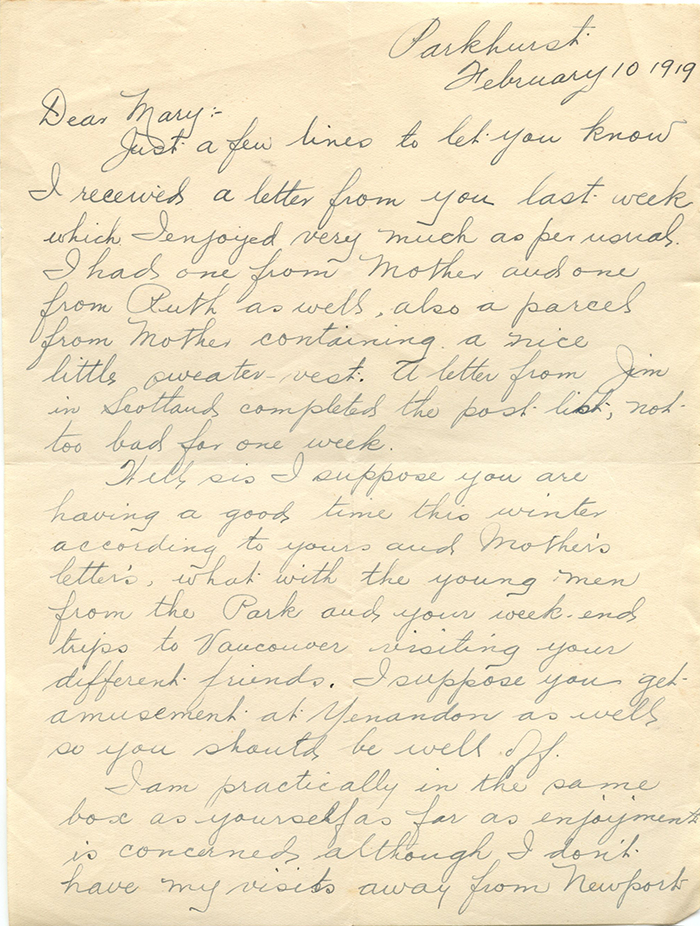 Parkhurst
February 10 1919
Dear Mary:-
Just a few lines to let you know
I received a letter from you last week
which I enjoyed very much as per usual.
I had one from Mother and one
from Ruth as well, also a parcel
from Mother containing a nice
little sweater-vest. A letter from Jim
in Scotland completed the post list, not
too bad for one week.
Well sis I suppose you are
having a good time this winter
according to yours and Mother's
letter's, what with the young men
from the Park and your week-ends
trips to Vancouver visiting your
different friends. I suppose you get
amusement at Yenandon as well
so you should be well off.
I am practically in the same
box as yourself as far as enjoyment
is concerned although I don't
have my visits away from Newport